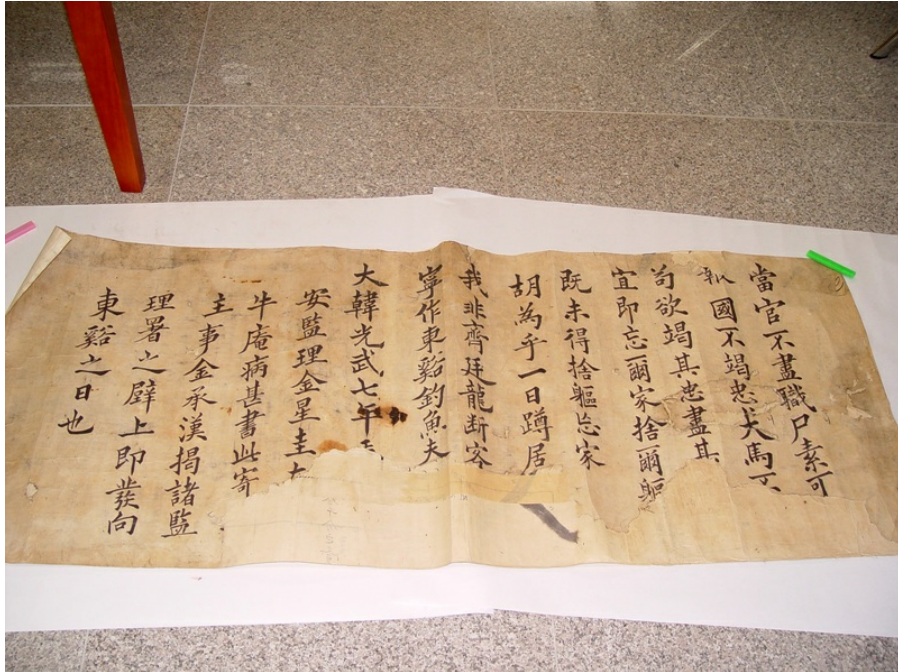 當官不盡職尸素可
報國不竭忠犬馬不
苟欲竭其忠盡其
宜卽忘爾家捨爾軀
旣未得捨軀忘家
胡為乎一日蹲居
我非齊廷龍断客
寧作東谿釣魚夫
大韓光武七年
安監理金星圭
牛庵病甚書此寄
主事金承漢揭諸監
理署之壁上即發向
東谿之日也